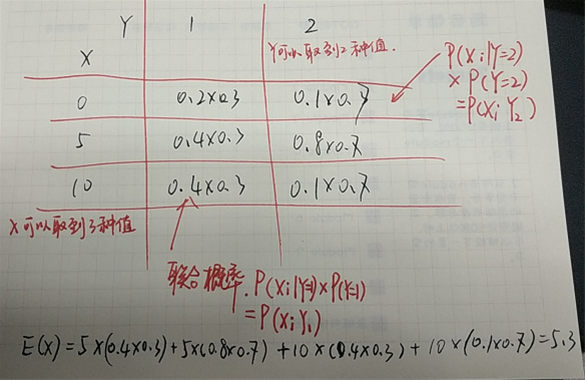 Y 1 2
Y可以取到2种值.
X
P(Xi|Y=2)
× P(Y=2)
=P(Xi Y₂)
0 0.2×0.3 0.1×0.7
5 0.4×0.3 0.8×0.7
10 0.4×0.3 0.1×0.7
X可以取到3种值
联合概率. P(Xi|Y=1)×P(Y=1)
= P(Xi Y₁)
E(X)=5×(0.4×0.3)+5×(0.8×0.7)+10×(0.4×0.3)+10×(0.1×0.7)=5.3